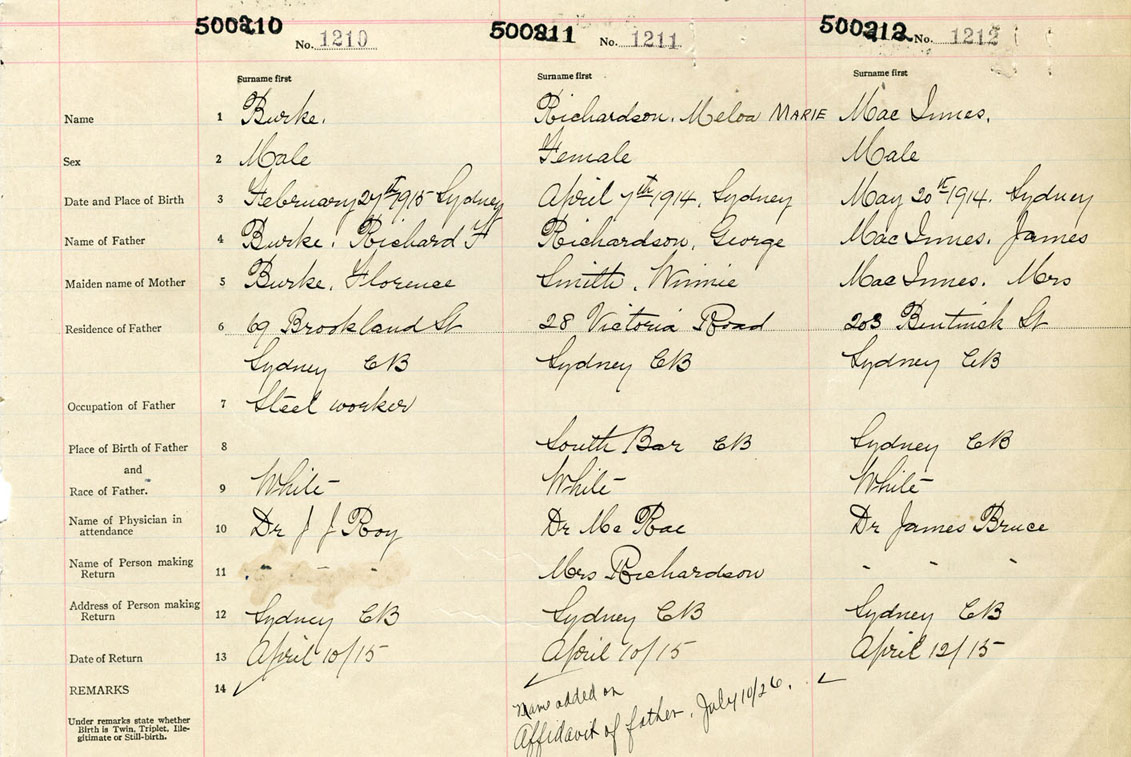 500210 500211 500212
No. 1210 No. 1211 No. 1212
Surname first Surname first Surname first
Name 1 Burke. Richardson, Meloa MARIE Mac Innes.
Sex 2 Male Female Male
Date and Place of Birth 3 February 27th 1915 Sydney April 7th 1914, Sydney May 20th 1914. Sydney
Name of Father 4 Burke. Richard F Richardson, George Mac Innes. James
Maiden name of Mother 5 Burke, Florence Smith, Winnie Mac Innes. Mrs
Residence of Father 6 69 Brookland St 28 Victoria Road 203 Bentinck St
Sydney CB Sydney CB Sydney CB
Occupation of Father 7 Steel worker
Place of Birth of Father 8 South Bar CB Sydney CB
and
Race of Father. 9 White White White
Name of Physician in attendance 10 Dr J J Roy Dr Mc Rae Dr James Bruce
Name of Person making Return 11 - - - Mrs Richardson - - -
Address of Person making Return 12 Sydney CB Sydney CB Sydney CB
Date of Return 13 April 10/15 April 10/15 April 12/15
REMARKS 14 ✓ ✓ ✓
Name added on
Affidavit of father. July 10/26.
Under remarks state whether
Birth is Twin, Triplet, Ille-
gitimate or Still-birth.